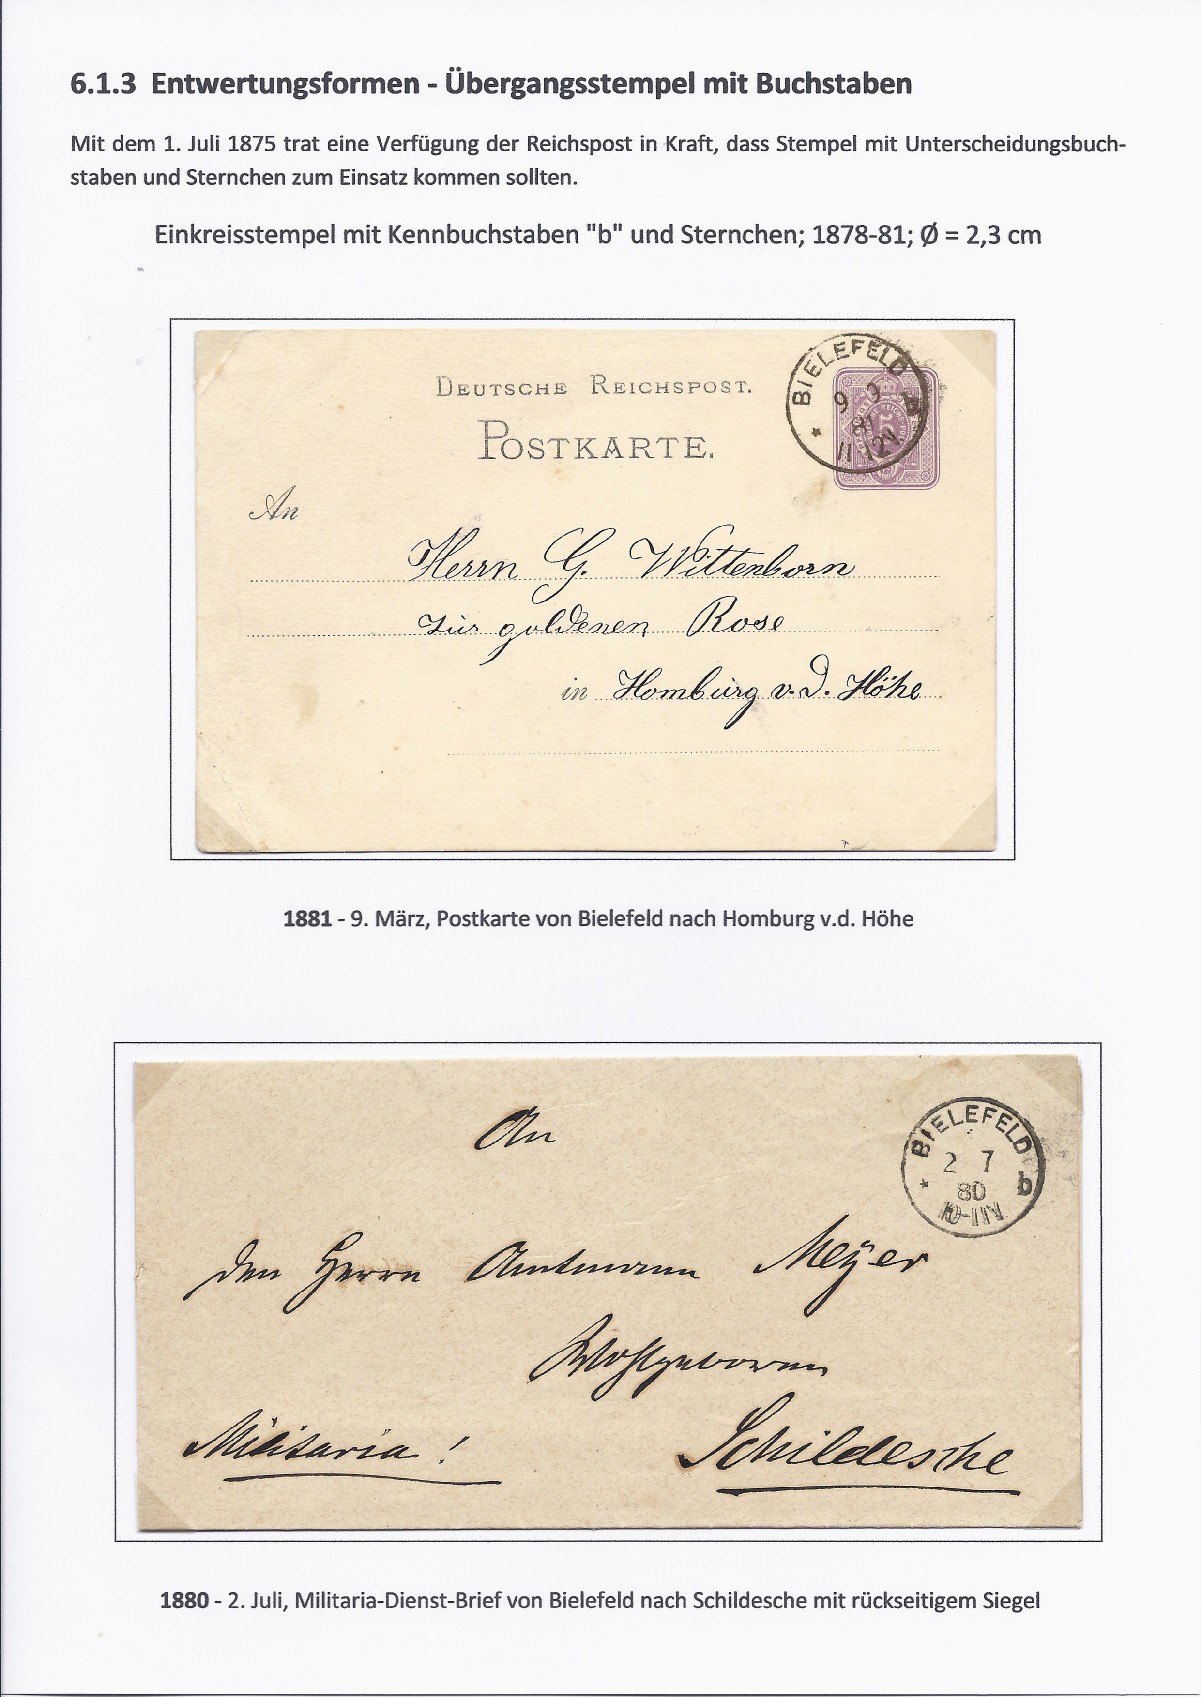 6.1.3 Entwertungsformen - Übergangsstempel mit Buchstaben
Mit dem 1. Juli 1875 trat eine Verfügung der Reichspost in Kraft, dass Stempel mit Unterscheidungsbuch-
staben und Sternchen zum Einsatz kommen sollten.
Einkreisstempel mit Kennbuchstaben "b" und Sternchen; 1878-81; Ø = 2,3 cm
DEUTSCHE REICHSPOST.
POSTKARTE.
BIELEFELD
9 9 b
81
11-12N
5
An
Herrn G. Wittenborn
zur goldenen Rose
in Homburg v. d. Höhe
1881 - 9. März, Postkarte von Bielefeld nach Homburg v.d. Höhe
BIELEFELD
2 7
80 b
10-11N
An
den Herrn Amtmann Meyer
Wohlgeboren
Militaria!
Schildesche
1880 - 2. Juli, Militaria-Dienst-Brief von Bielefeld nach Schildesche mit rückseitigem Siegel